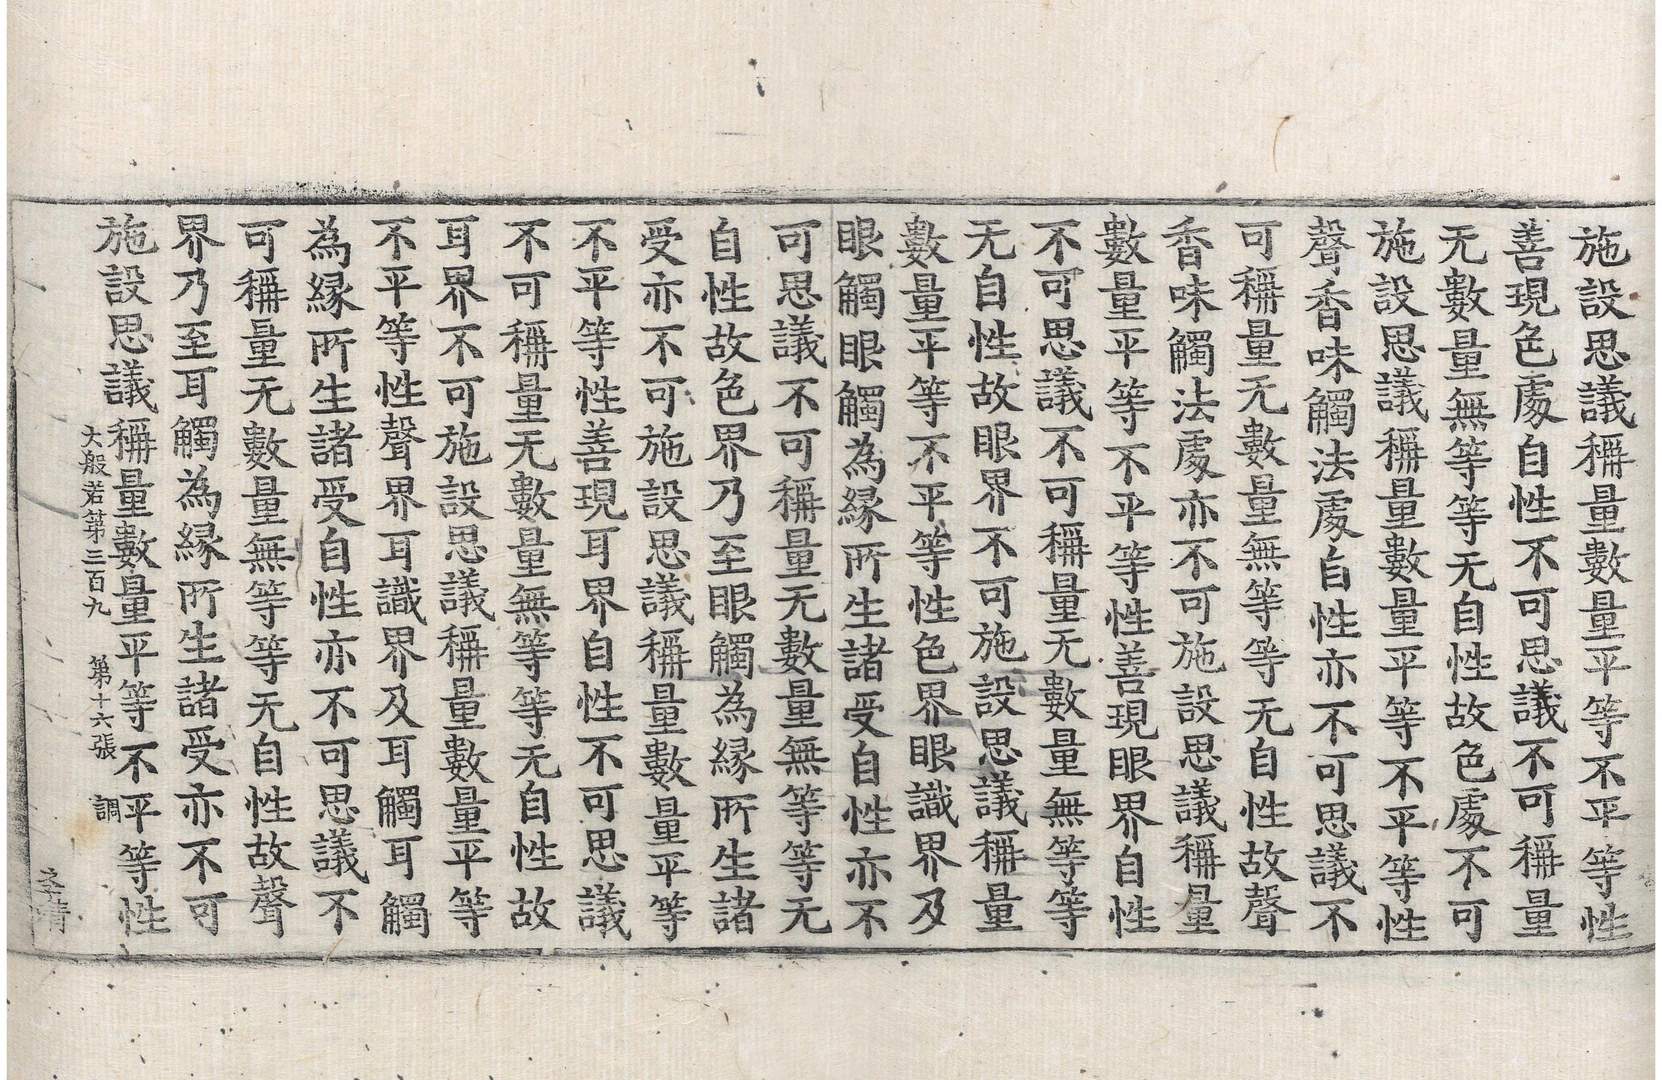 施設思議稱量數量平等不平等性
善現色處自性不可思議不可稱量
无數量無等等无自性故色處不可
施設思議稱量數量平等不平等性
聲香味觸法處自性亦不可思議不
可稱量无數量無等等无自性故聲
香味觸法處亦不可施設思議稱量
數量平等不平等性善現眼界自性
不可思議不可稱量无數量無等等
无自性故眼界不可施設思議稱量
數量平等不平等性色界眼識界及
眼觸眼觸為縁所生諸受自性亦不
可思議不可稱量无數量無等等无
自性故色界乃至眼觸為縁所生諸
受亦不可施設思議稱量數量平等
不平等性善現耳界自性不可思議
不可稱量无數量無等等无自性故
耳界不可施設思議稱量數量平等
不平等性聲界耳識界及耳觸耳觸
為縁所生諸受自性亦不可思議不
可稱量无數量無等等无自性故聲
界乃至耳觸為縁所生諸受亦不可
施設思議稱量數量平等不平等性
大般若第三百九 第十六張 調